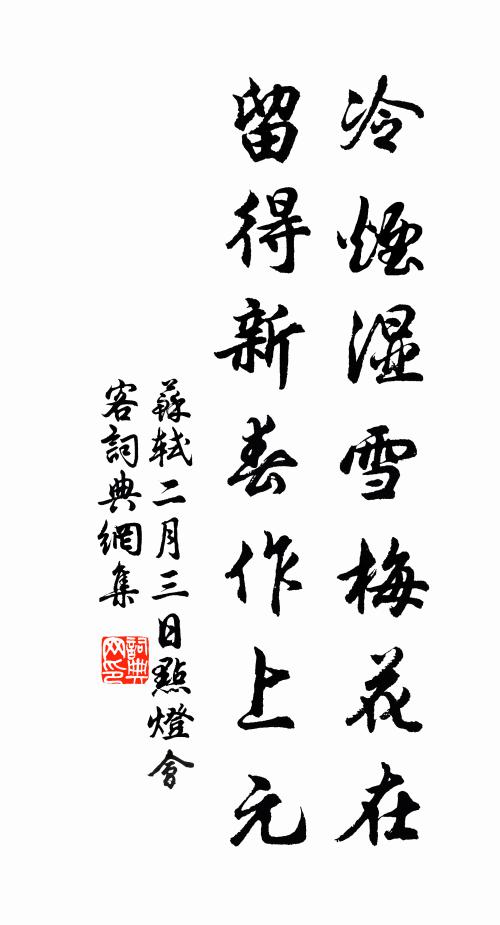 冷煙湿雪梅花在
留得新春作上元
蘇軾二月三日點燈會
客詞典網集
詞典
网印